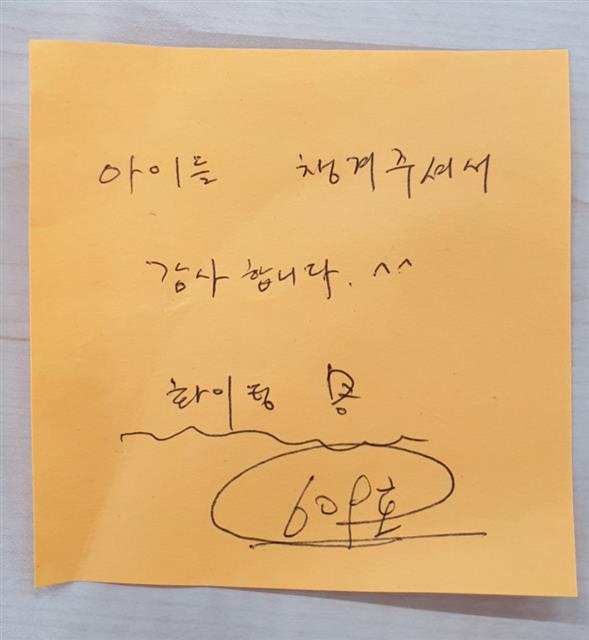 아이들 챙겨주셔서
감사합니다. ^^
화이팅
609호